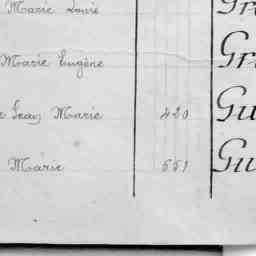 Marie Louis Gr
Marie Eugène Gr
e Jean Marie 420 Gu
Marie 551 Gu